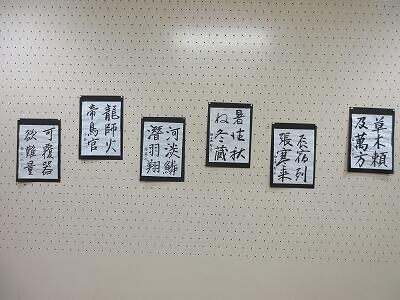 草木頼
及萬方
辰宿列
張寒来
暑往秋
收冬藏
河淡鱗
潛羽翔
龍師火
帝鳥官
可覆器
欲難量